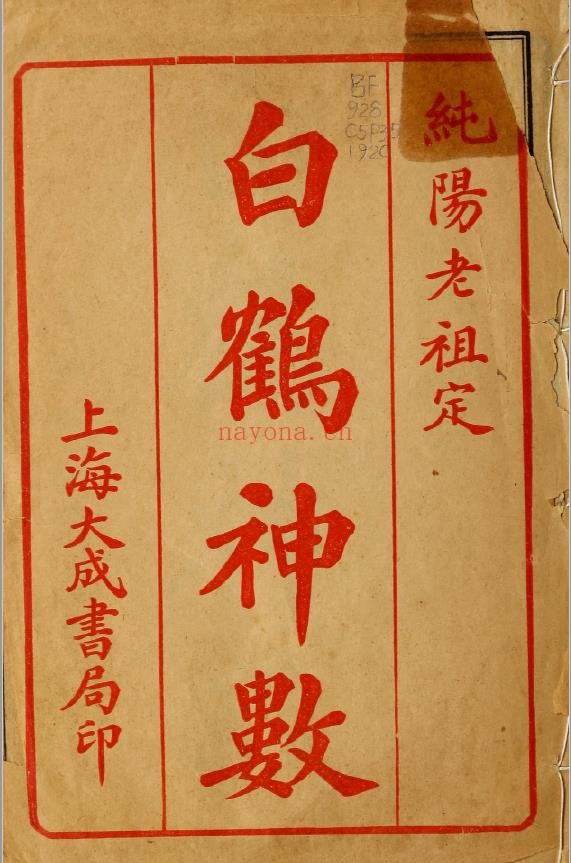 純陽老祖定
白鶴神數
上海大成書局印
BF
928
C5P35
1920
nayona.cn